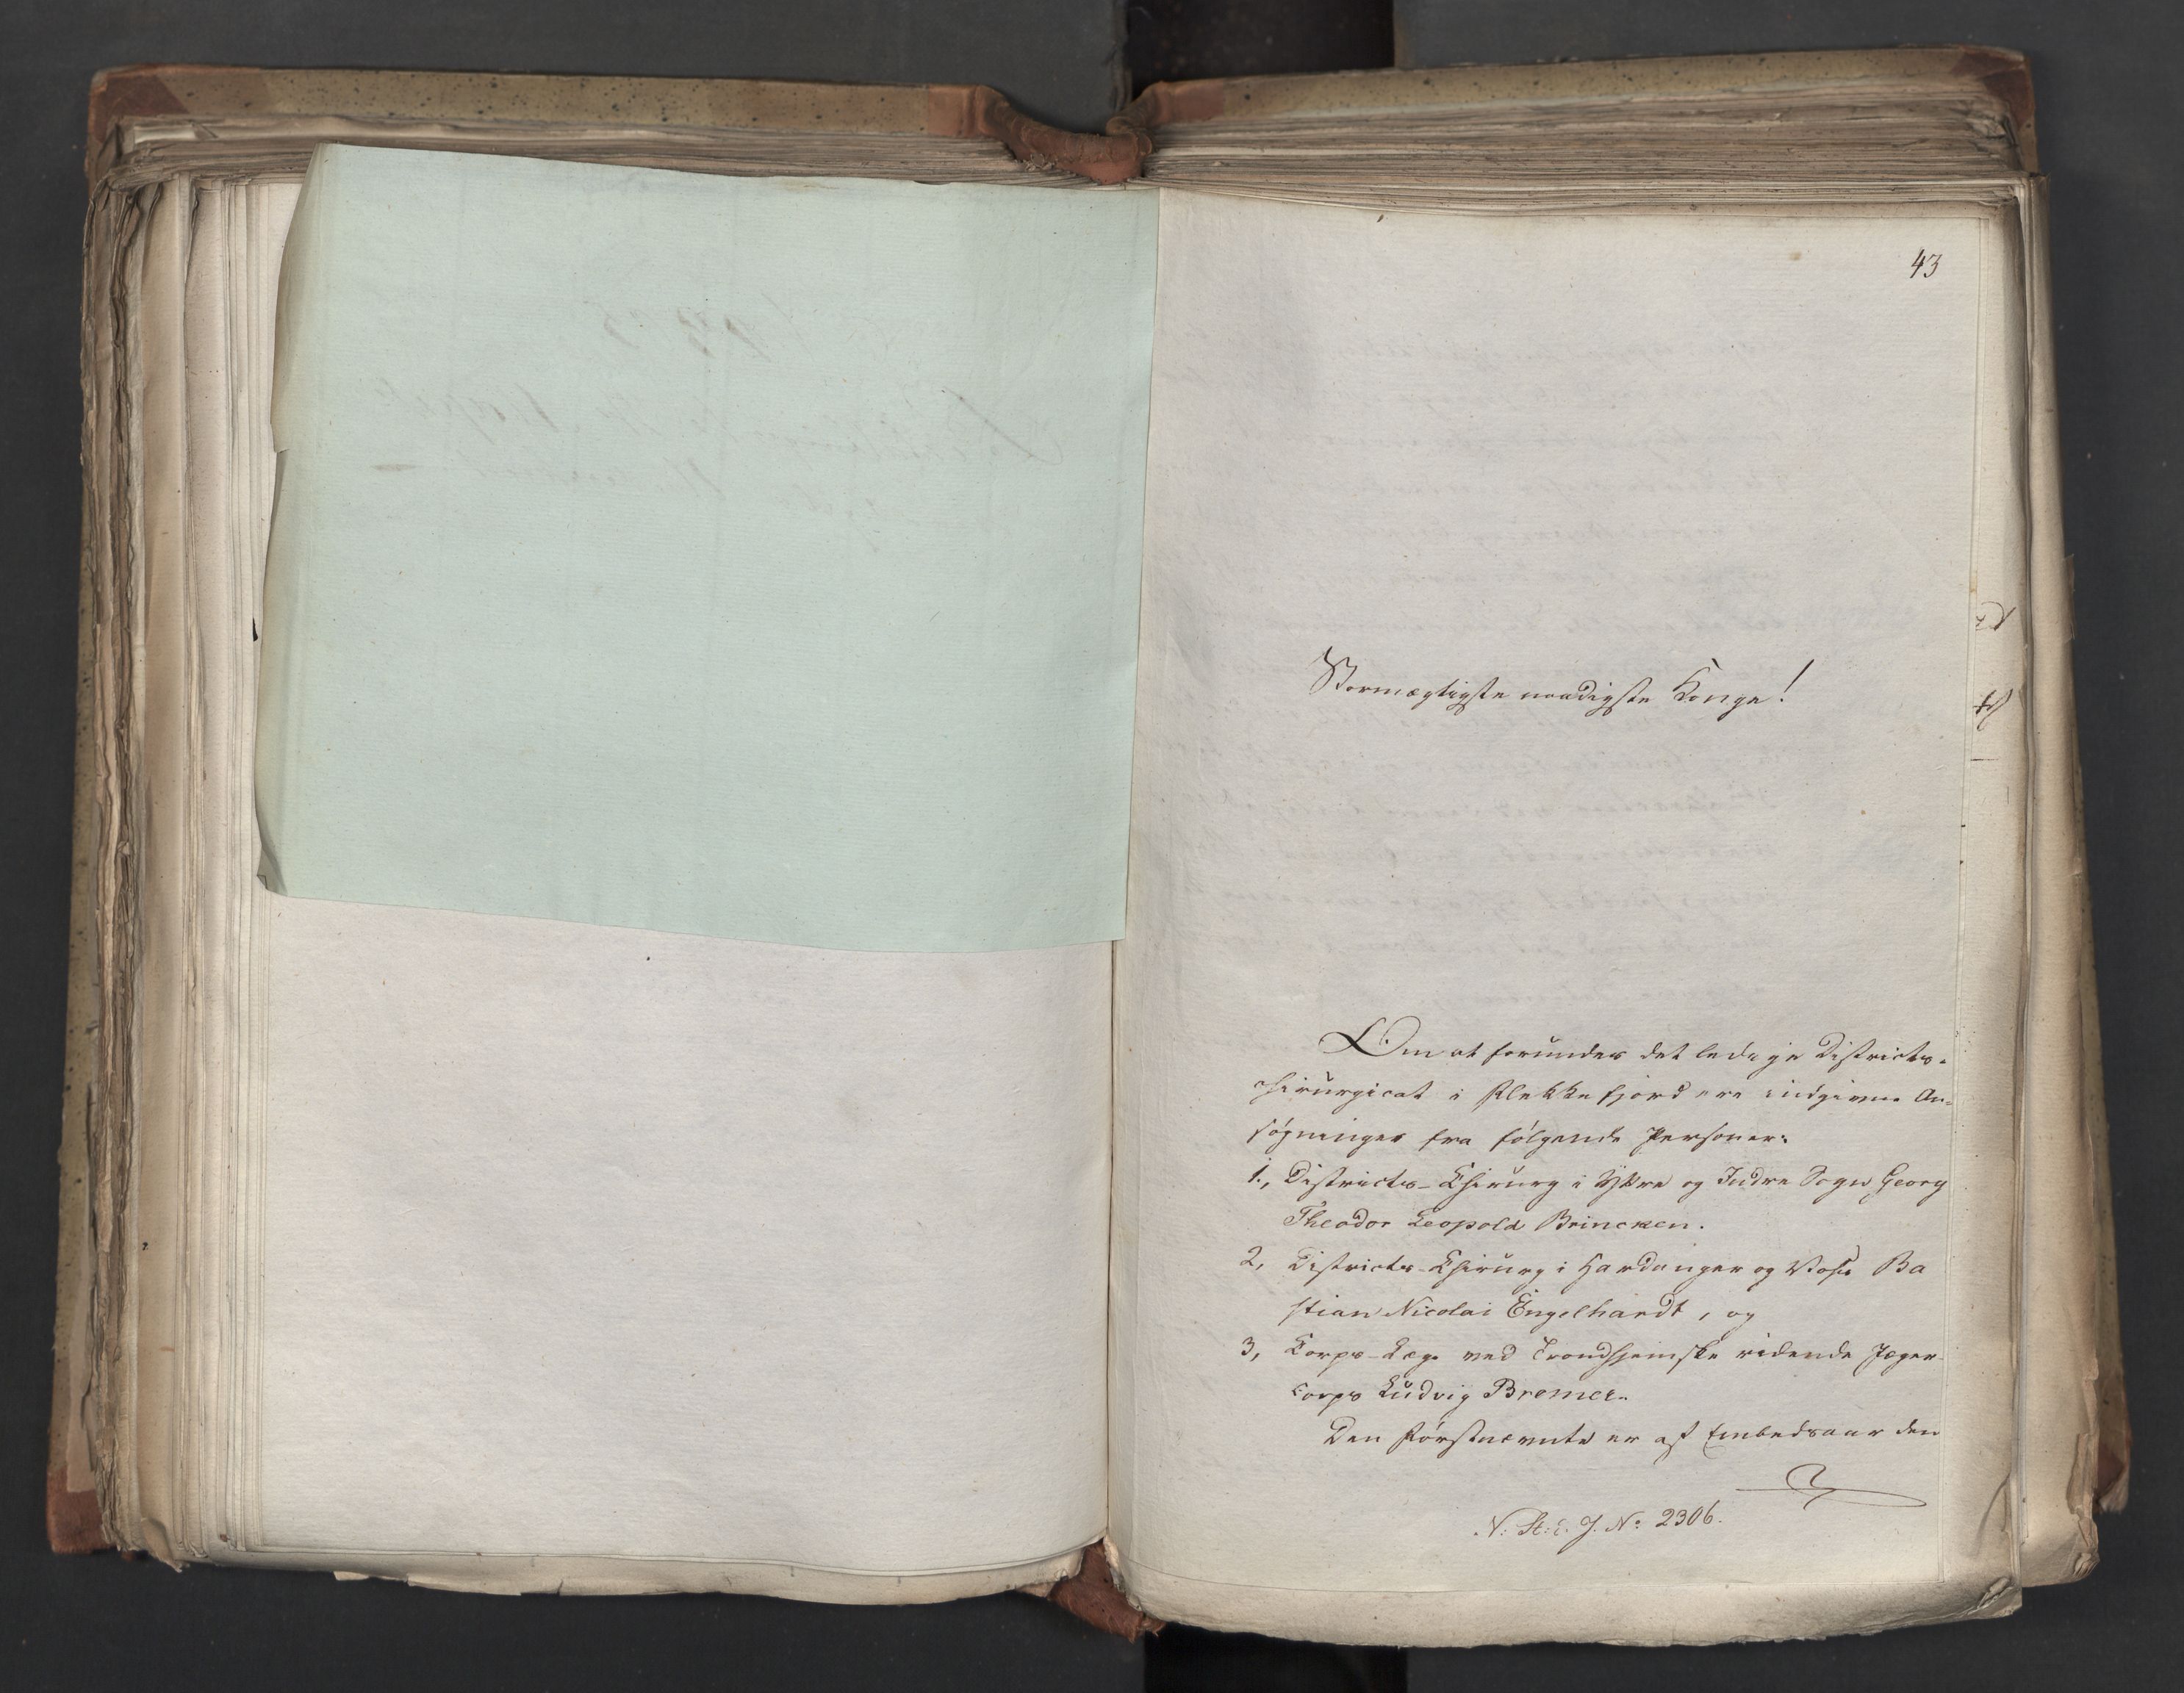 43
Stormægtigste naadigste Konge!
Om at forundes det ledige Districts-
chirurgicat i Flekkefjord ere indgivne An-
søgninger fra følgende Personer:
1., Districts-Chirurg i Yttre og Indre Sogn Georg
Theodor Leopold Brincken.
2, Districts-Chirurg i Hardanger og Voss Ba
stian Nicolai Engelhardt, og
3, Corps-Læge ved Trondhjemske ridende Jæger-
corps Ludvig Bremer.
Den Førstnævnte er af Embedsaar den
N: St: S. J. No 2306.